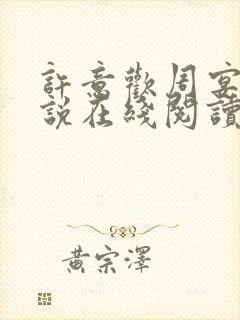 許意歡周宴
說在綫閱讀
黃宗澤